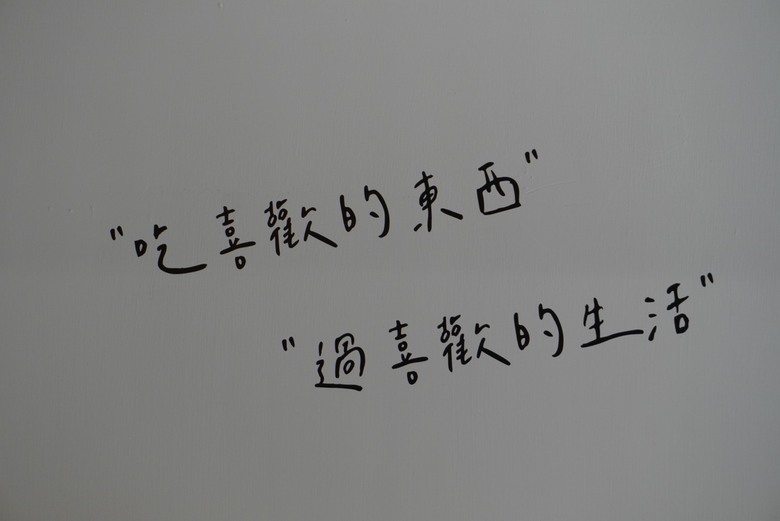 "吃喜歡的東西"
"過喜歡的生活"